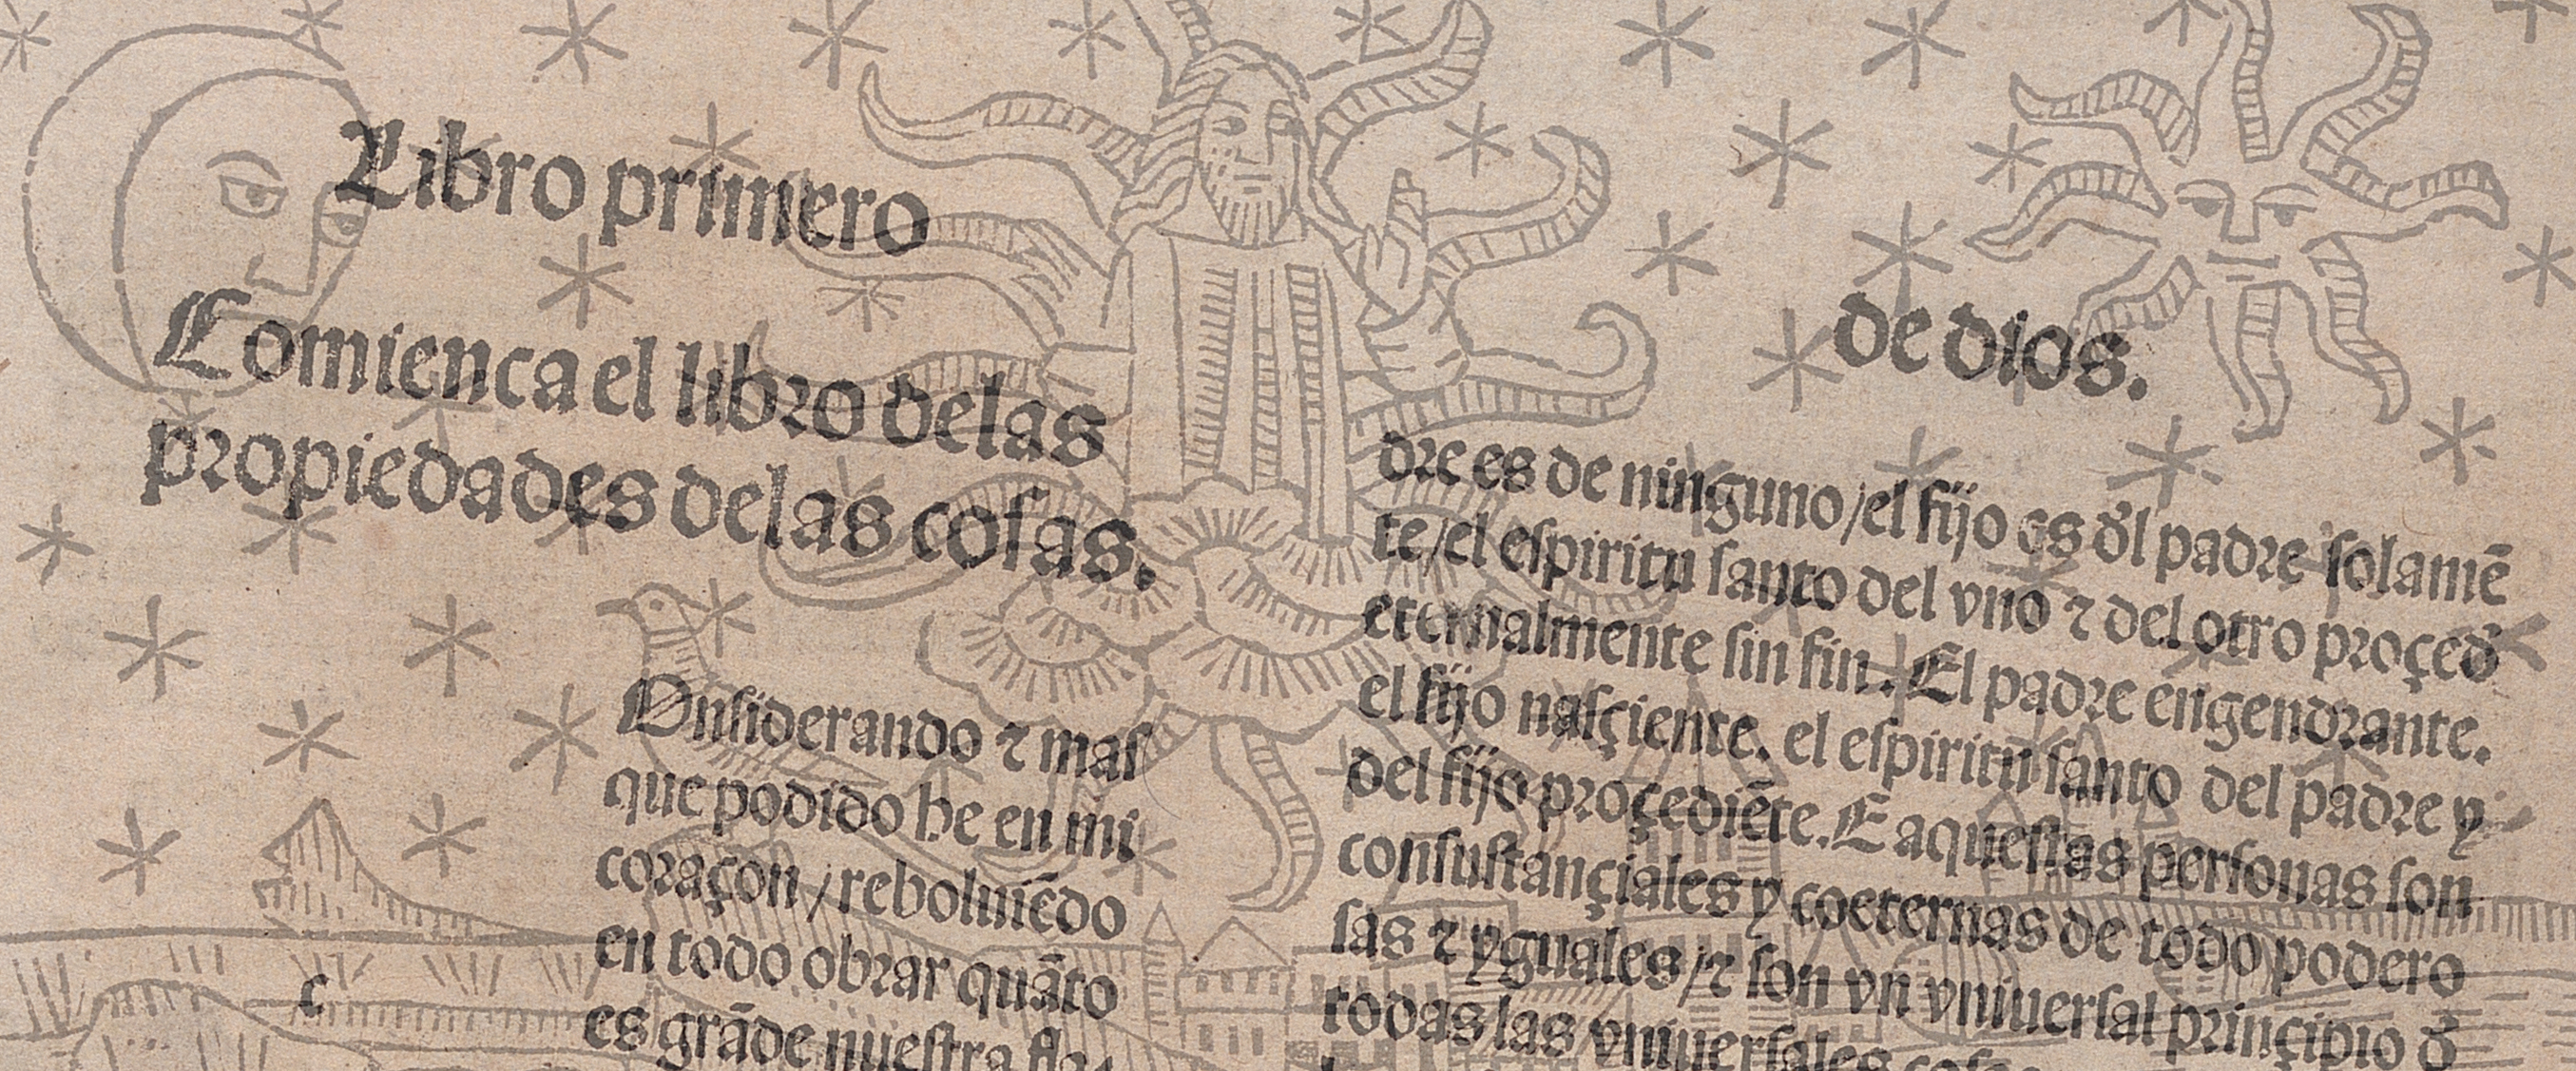 Libro primero
de dios.
Comienca el libro delas
propiedades delas cosas.
Onsiderando ⁊ mas
que podido he en mi
coraçon / reboluiēdo
en todo obrar quāto
c
es grāde nuestra
dre es de ninguno / el fijo es đl padre solamē
te / el espiritu santo del vno ⁊ del otro proçeđ
eternalmente sin fin. El padre engendrante.
el fijo nasçiente. el espiritu santo del padre y
del fijo proçediēte. E aquestas personas son
consustançiales y coeternas de todo podero
sas ⁊ yguales / ⁊ son vn vniuersal prinçipio đ
todas las vniuersales